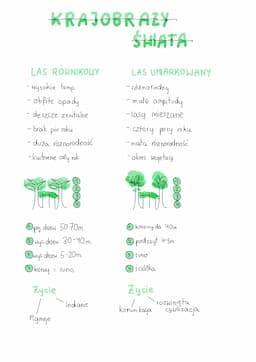 KRAJOBRAZY
ŚWIATA
LAS RÓWNIKOWY
- wysokie temp.
- obfite opady
- deszcze zenitalne
- brak pór roku
- duża różnorodność
- kwitnienie cały rok
1 pię drzew 50-70m
2 wys drzew 30-40m
3 wys drzew 5-20m
4 krzewy i runo
Życie
Pigmeje
Indianie
LAS UMIARKOWANY
- różnorodny
- małe amplitudy
- lasy mieszane
- cztery pory roku
- mała różnorodność
- okres wegetacji
1 korony do 40m
2 podszyt 4-5m
3 runo
4 ściółka
Życie
komunikacja
rozwinięta
cywilizacja